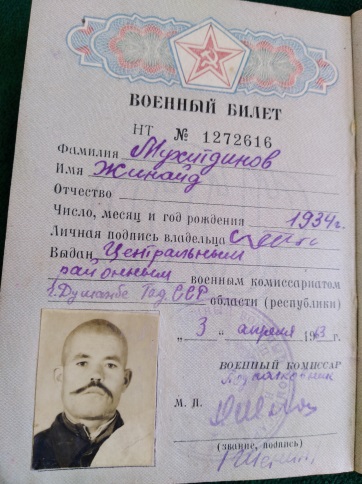 ВОЕННЫЙ БИЛЕТ
НТ № 1272616
Фамилия Мухитдинов
Имя Жинаид
Отчество
Число, месяц и год рождения 1934г.
Личная подпись владельца
Выдан Центральным
районным военным комиссариатом
г. Душанбе Тад. ССР области (республики)
„3“ апреля 1963 г.
ВОЕННЫЙ КОМИССАР
Подполковник
М. П.
(звание, подпись)